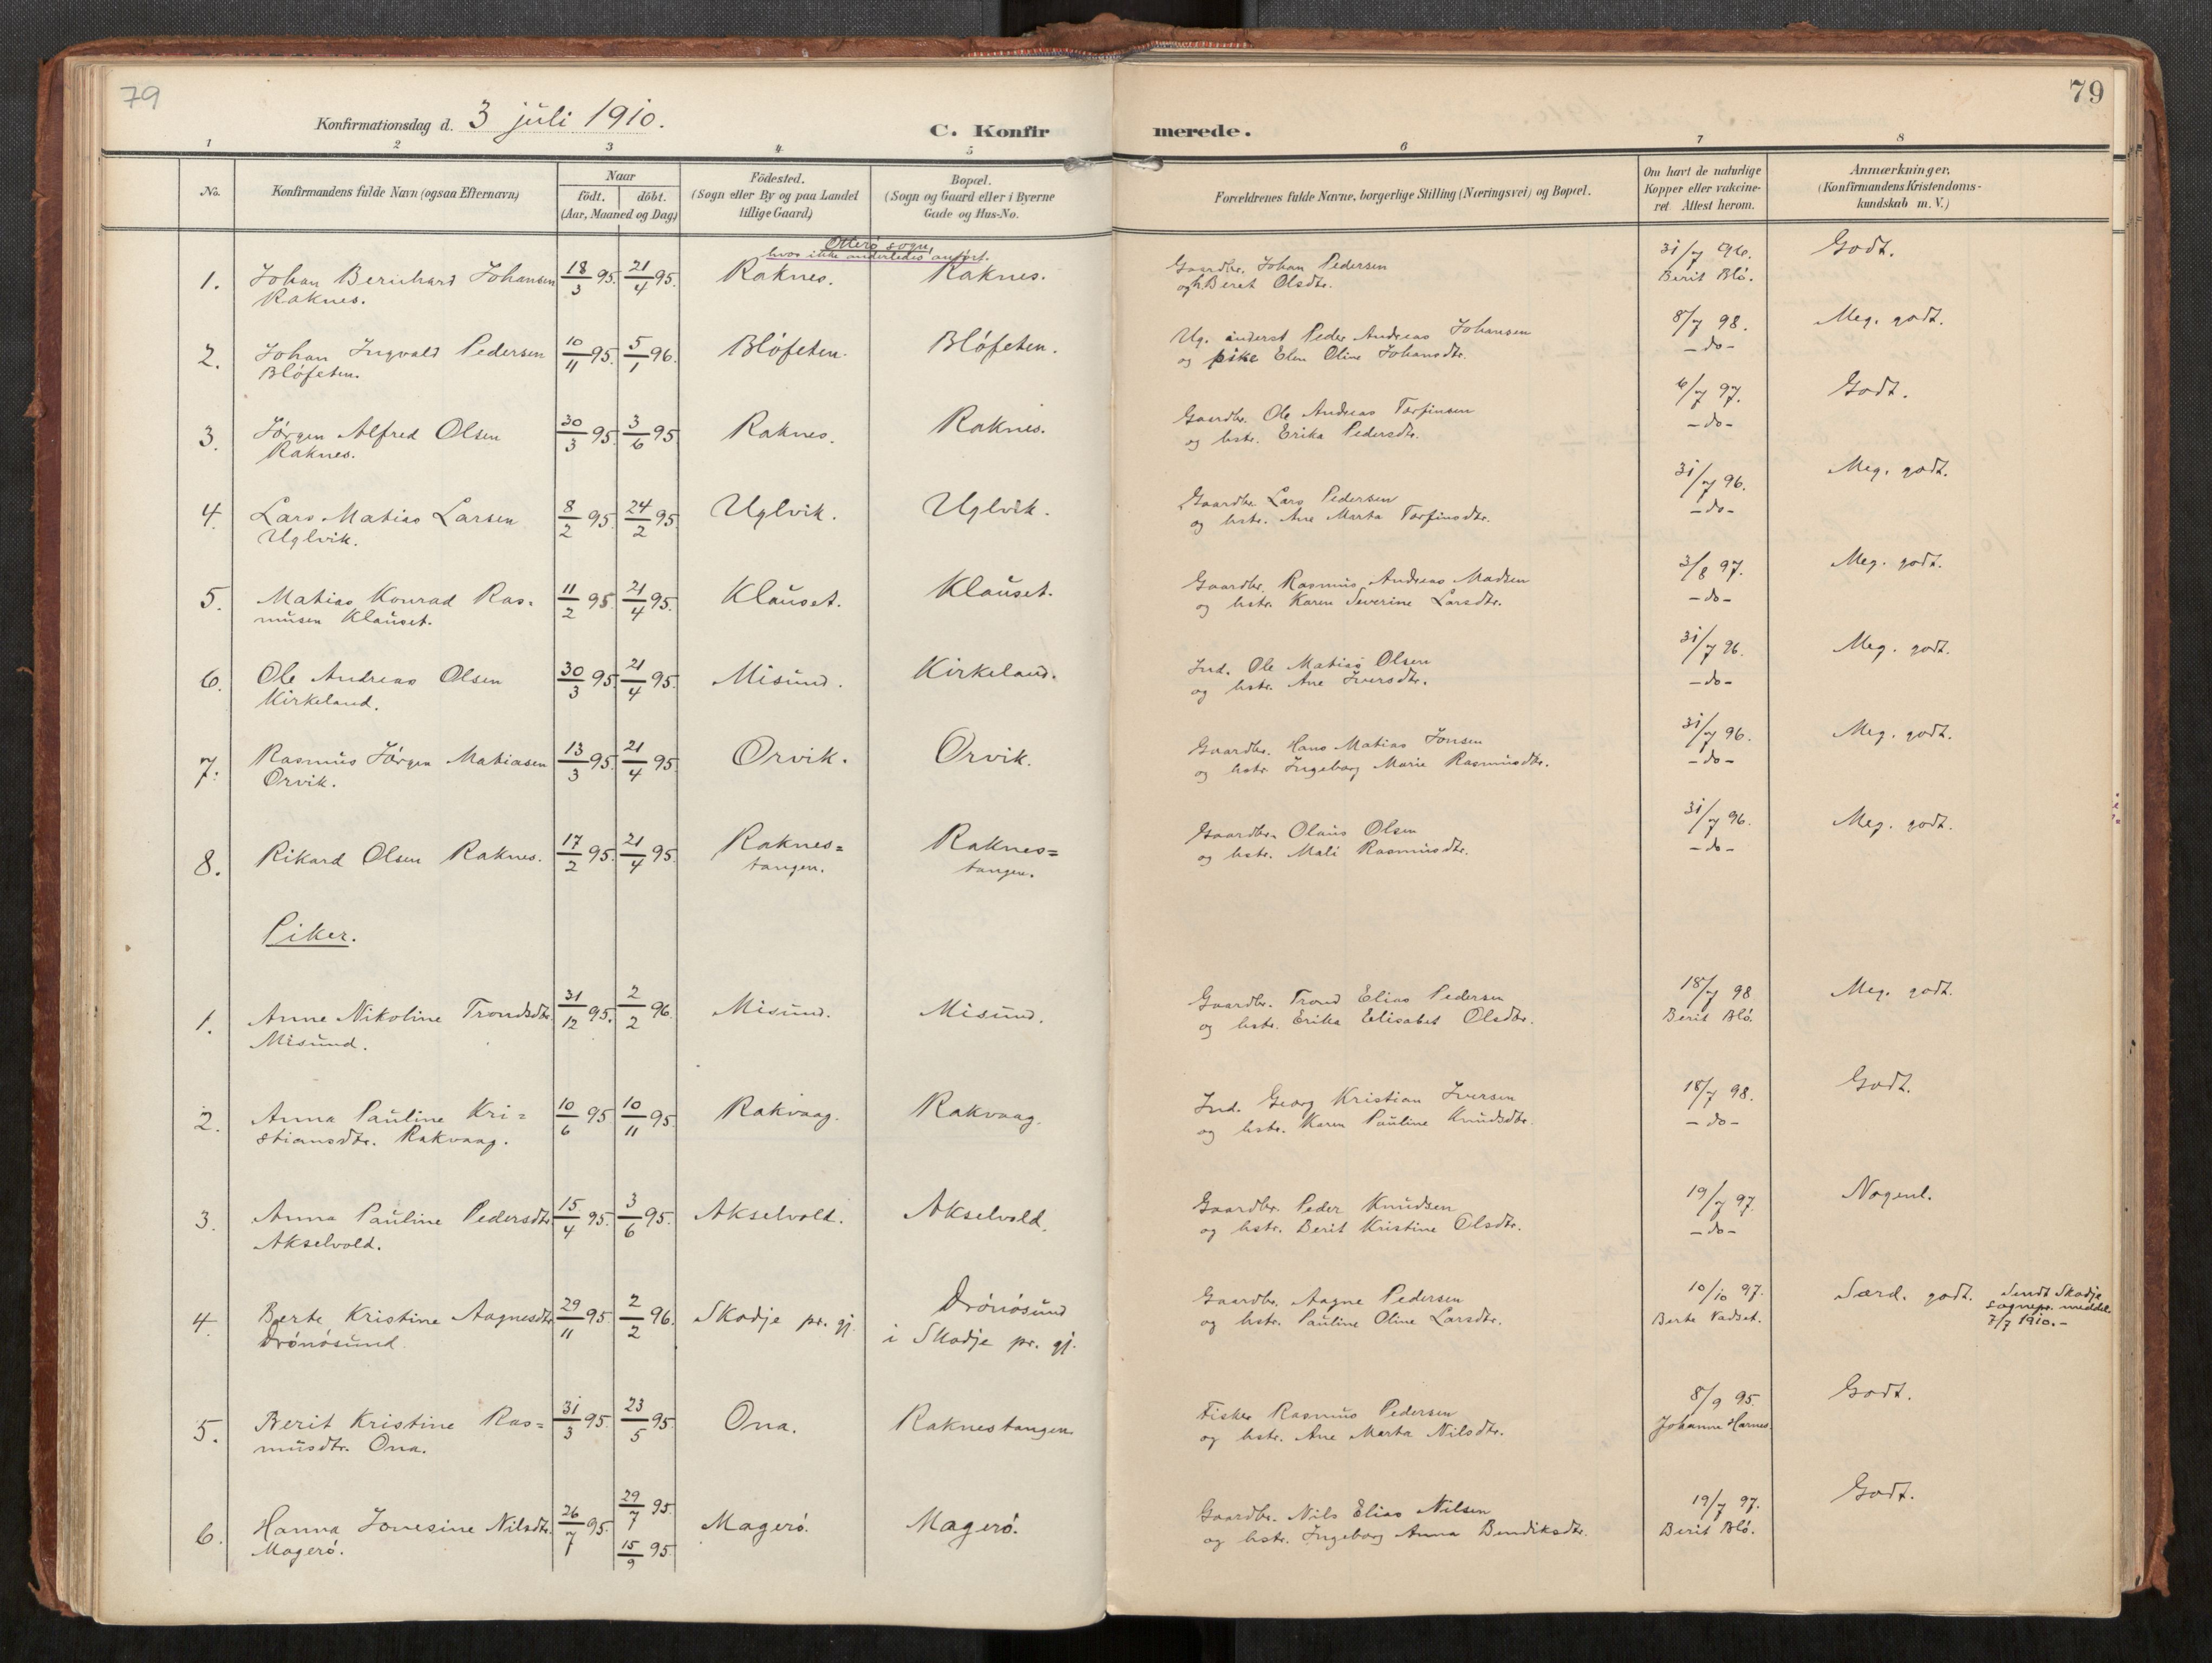 79
Konfirmationsdag d. 3 juli 1910.
C. Konfirmerede.
79
1 2 3 4 5 6 7 8
No.
Konfirmandens fulde Navn (ogsaa Efternavn)
Naar
födt. döbt.
(Aar, Maaned og Dag)
Födested.
(Sogn eller By og paa Landet
tillige Gaard)
Bopæl.
(Sogn og Gaard eller i Byerne
Gade og Hus-No.
Forældrenes fulde Navne, borgerlige Stilling (Næringsvei) og Bopæl.
Om havt de naturlige
Kopper eller vakcine-
ret Attest herom.
Anmærkninger,
(Konfirmandens Kristendoms-
kundskab m. V.)
Otterö sogn,
hvor ikke anderledes anfört.
1. Johan Bernhard Johansen 18/3 95. 21/4 95. Raknes. Raknes. Gaardbr. Johan Pedersen 31/7 96. Godt.
Raknes. og h. Beret Olsdtr. Berit Blö.
2. Johan Ingvald Pedersen 10/11 95. 5/1 96. Blöfeten. Blöfeten. Ug. Peder Andreas Johansen 8/7 98. Meg. godt.
Blöfeten. og pike Elen Oline Johansdtr. -do-
3. Jörgen Alfred Olsen 30/3 95. 3/6 95 Raknes. Raknes. Gaardbr. Ole Andreas Torfinsen 6/7 97. Godt.
Raknes. og hstr. Erika Pedersdtr. -do-
4. Lars Matias Larsen 8/2 95. 24/2 95. Uglvik. Uglvik. Gaardbr. Lars Pedersen 31/7 96. Meg. godt.
Uglvik. og hstr. Ane Marta Torfinsdtr. -do-
5. Matias Konrad Ras= 11/2 95. 21/4 95. Klauset. Klauset. Gaardbr. Rasmus Andreas Madsen 3/8 97. Meg. godt.
musen Klauset. og hstr. Karen Severine Larsdtr. -do-
6. Ole Andreas Olsen 30/3 95. 21/4 95. Misund. Kirkeland. Ind. Ole Matias Olsen 31/7 96. Meg. godt.
Kirkeland. og hstr. Ane Iversdtr. -do-
7. Rasmus Jörgen Matiasen 13/3 95. 21/4 95. Orvik. Orvik. Gaardbr. Hans Matias Jonsen 31/7 96. Meg. godt.
Orvik. og hstr. Ingeborg Marie Rasmusdtr. -do-
8. Rikard Olsen Raknes. 17/2 95. 21/4 95. Raknes= Raknes= Gaardbr. Olaus Olsen 31/7 96. Meg. godt.
tangen. tangen. og hstr. Mali Rasmusdtr. -do-
Piker.
1. Anne Nikoline Trondsdtr. 31/12 95. 2/2 96. Misund. Misund. Gaardbr. Trond Elias Pedersen 18/7 98 Meg. godt.
Misund. og hstr. Erika Elisabet Olsdtr. Berit Blö.
2. Anna Pauline Kri= 10/6 95 10/11 95. Rakvaag. Rakvaag. Ind. Georg Kristian Iversen 18/7 98. Godt.
stiansdtr. Rakvaag. og hstr. Karen Pauline Knudsdtr. -do-
3. Anna Pauline Pedersdtr 15/4 95. 3/6 95. Akselvold. Akselvold. Gaardbr. Peder Knudsen 19/7 97. Nogenl.
Akselvold. og hstr. Berit Kristine Olsdtr. -do-
4. Berte Kristine Aagnesdtr 29/11 95. 2/2 96. Skodje pr. gj. Drönösund Gaardbr. Aagne Pedersen 10/10 97. Særd. godt. Sendt Skodje
Drönösund i Skodje pr. gj. og hstr. Pauline Oline Larsdtr. Berte Vadset. sognepr. meddel.
7/7 1910.-
5. Berit Kristine Ras= 31/3 95. 23/5 95. Ona. Raknestangen. Fisker Rasmus Pedersen 8/9 95. Godt.
musdtr. Ona. og hstr. Ane Marta Nilsdtr. Johanne Harnes.
6. Hanna Jonesine Nilsdtr. 26/7 95. 29/7 95. 15/9 95. Magerö. Magerö. Gaardbr. Nils Elias Nilsen 19/7 97. Godt.
Magerö. og hstr. Ingeborg Anna Bendiksdtr. Berit Blö.